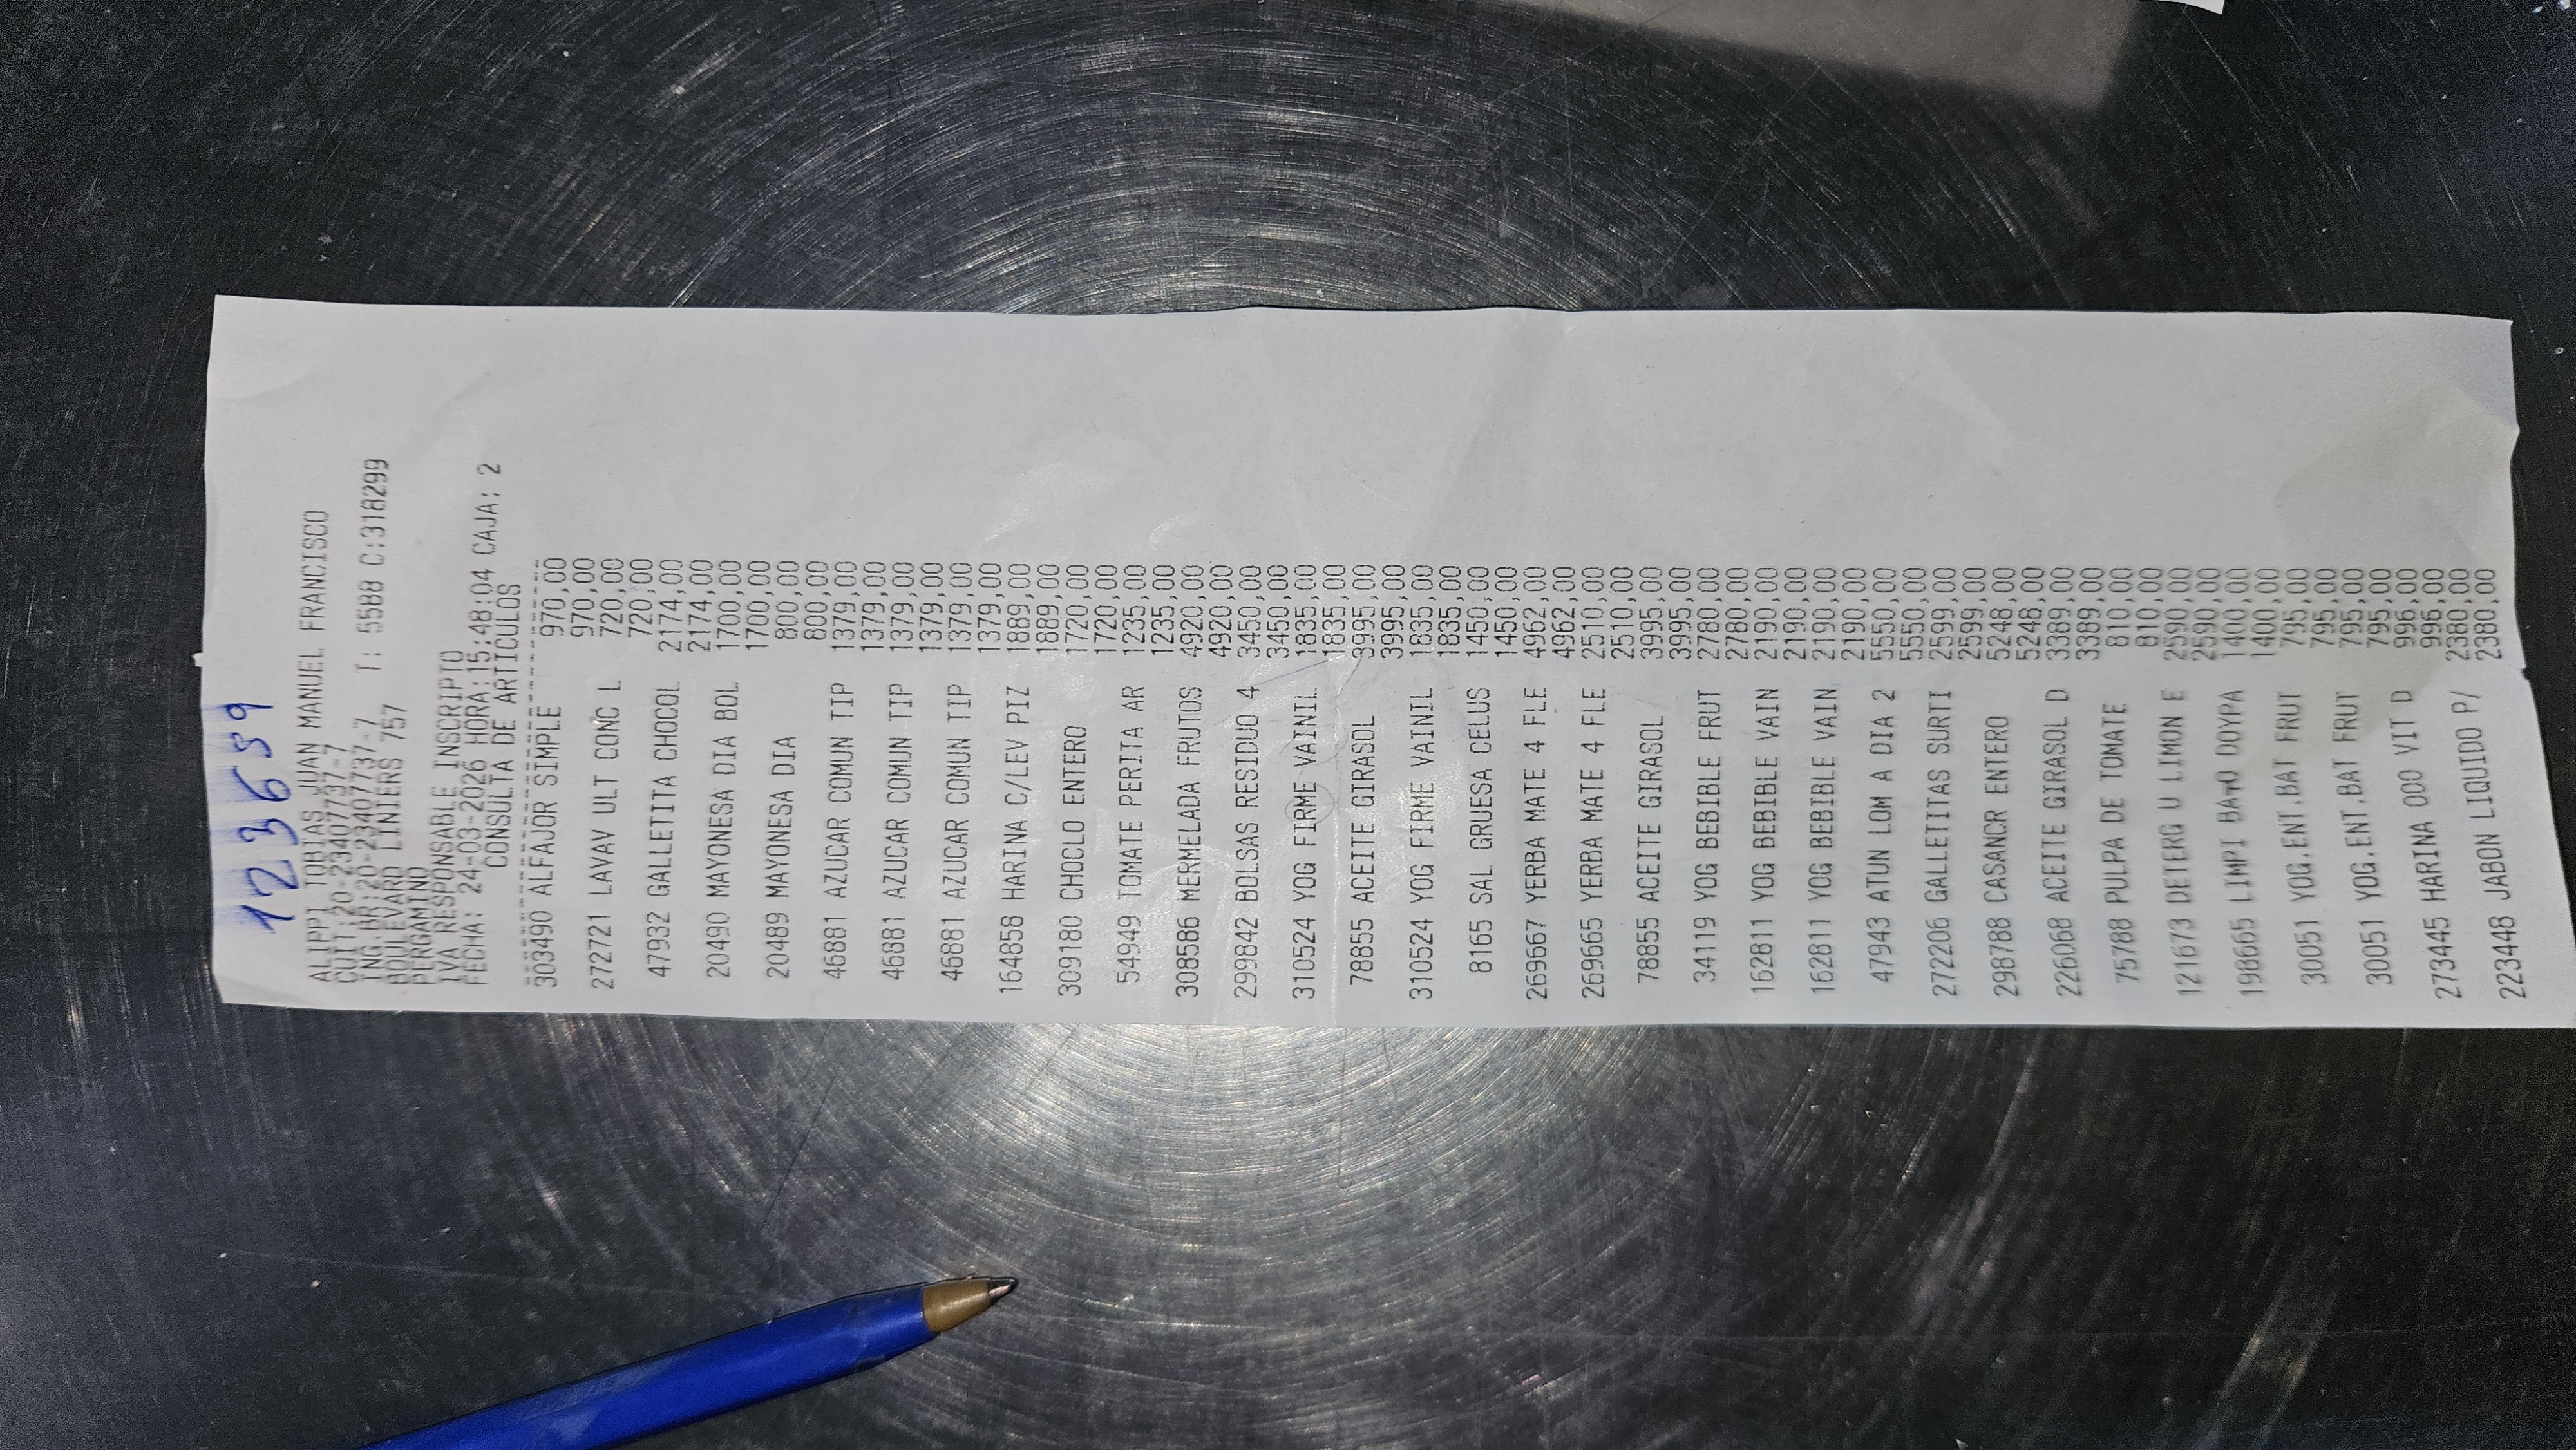 123659
ALIPPI TOBIAS JUAN MANUEL FRANCISCO
CUIT:20-23407737-7
ING.BR:20-23407737-7 T: 5588 C:318299
BOULEVARD LINIERS 757
PERGAMINO
IVA RESPONSABLE INSCRIPTO
FECHA: 24-03-2026 HORA:15:48:04 CAJA: 2
CONSULTA DE ARTICULOS
303490 ALFAJOR SIMPLE 970,00
970,00
272721 LAVAV ULT CONC L 720,00
720,00
47932 GALLETITA CHOCOL 2174,00
2174,00
20490 MAYONESA DIA BOL 1700,00
1700,00
20489 MAYONESA DIA 800,00
800,00
46881 AZUCAR COMUN TIP 1379,00
1379,00
46881 AZUCAR COMUN TIP 1379,00
1379,00
46881 AZUCAR COMUN TIP 1379,00
1379,00
164858 HARINA C/LEV PIZ 1889,00
1889,00
309180 CHOCLO ENTERO 1720,00
1720,00
54949 TOMATE PERITA AR 1235,00
1235,00
308586 MERMELADA FRUTOS 4920,00
4920,00
299842 BOLSAS RESIDUO 4 3450,00
3450,00
310524 YOG FIRME VAINIL 1835,00
1835,00
78855 ACEITE GIRASOL 3995,00
3995,00
310524 YOG FIRME VAINIL 1835,00
1835,00
8165 SAL GRUESA CELUS 1450,00
1450,00
269667 YERBA MATE 4 FLE 4962,00
4962,00
269665 YERBA MATE 4 FLE 2510,00
2510,00
78855 ACEITE GIRASOL 3995,00
3995,00
34119 YOG BEBIBLE FRUT 2780,00
2780,00
162811 YOG BEBIBLE VAIN 2190,00
2190,00
162811 YOG BEBIBLE VAIN 2190,00
2190,00
47943 ATUN LOM A DIA 2 5550,00
5550,00
272206 GALLETITAS SURTI 2599,00
2599,00
298788 CASANCR ENTERO 5248,00
5248,00
226068 ACEITE GIRASOL D 3389,00
3389,00
75788 PULPA DE TOMATE 810,00
810,00
121673 DETERG U LIMON E 2590,00
2590,00
198665 LIMPI BA¤O DOYPA 1400,00
1400,00
300051 YOG.ENT.BAT FRUT 795,00
795,00
300051 YOG.ENT.BAT FRUT 795,00
795,00
273445 HARINA 000 VIT D 996,00
996,00
223448 JABON LIQUIDO P/ 2380,00
2380,00